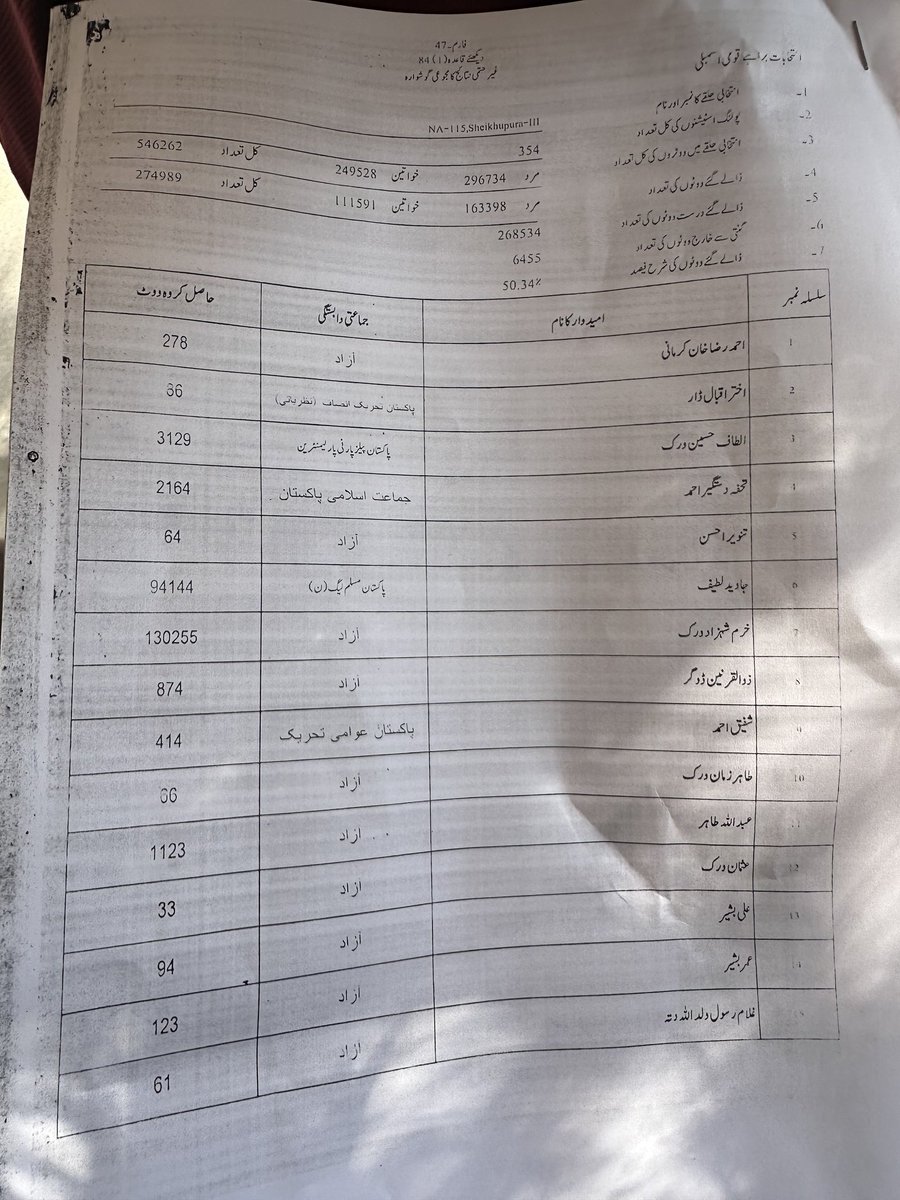 فارم-47
دیکھئے قاعدہ (1) 84
غیر حتمی نتائج کا مجموعی گوشوارہ
انتخابات برائے قومی اسمبلی
1- انتخابی حلقے کا نمبر اور نام NA-115,Sheikhupura-III
2- پولنگ اسٹیشنوں کی کل تعداد 354
3- انتخابی حلقے میں ووٹروں کی کل تعداد مرد 296734 خواتین 249528 کل تعداد 546262
4- ڈالے گئے ووٹوں کی تعداد مرد 163398 خواتین 111591 کل تعداد 274989
5- ڈالے گئے درست ووٹوں کی تعداد 268534
6- گنتی سے خارج ووٹوں کی تعداد 6455
7- ڈالے گئے ووٹوں کی شرح فیصد 50.34%
سلسلہ نمبر امیدوار کا نام جماعتی وابستگی حاصل کردہ ووٹ
1 احمد رضا خان کرمانی آزاد 278
2 اختر اقبال ڈار پاکستان تحریک انصاف (نظریاتی) 86
3 الطاف حسین ورک پاکستان پیپلز پارٹی پارلیمنٹیرین 3129
4 تحفہ دستگیر احمد جماعت اسلامی پاکستان 2164
5 تنویر احسن آزاد 64
6 جاوید لطیف پاکستان مسلم لیگ (ن) 94144
7 خرم شہزاد ورک آزاد 130255
8 ذوالقرنین ڈوگر آزاد 874
9 شفیق احمد پاکستان عوامی تحریک 414
10 طاہر زمان ورک آزاد 66
11 عبداللہ طاہر آزاد 1123
12 عثمان ورک آزاد 33
13 علی بشیر آزاد 94
14 عمر بشیر آزاد 123
15 غلام رسول ولد اللہ دتہ آزاد 61